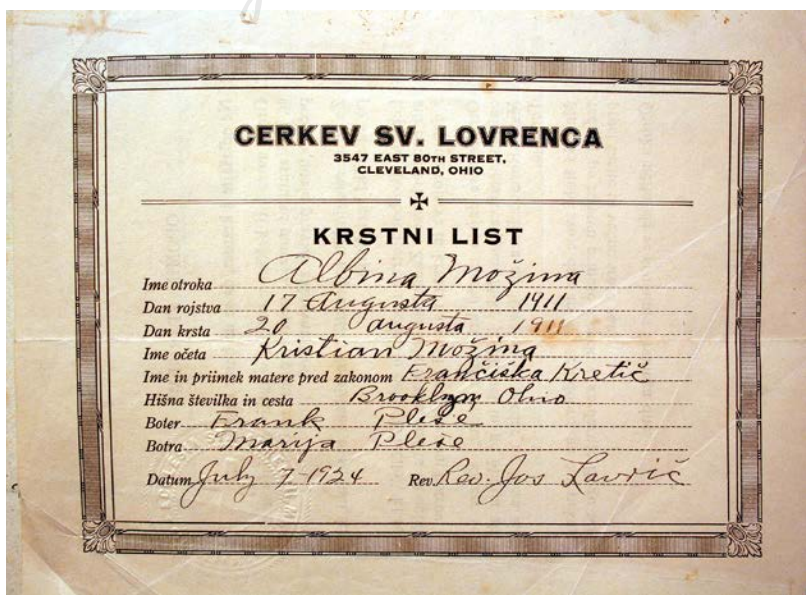 CERKEV SV. LOVRENCA
3547 EAST 80TH STREET,
CLEVELAND, OHIO
KRSTNI LIST
Ime otroka Albina Možina
Dan rojstva 17 Augusta 1911
Dan krsta 20 augusta 1911
Ime očeta Kristian Možina
Ime in priimek matere pred zakonom Frančiška Kretič
Hišna številka in cesta Brooklyn, Ohio
Boter Frank Pleše
Botra Marija Pleše
Datum July 7-1924 Rev. Rev. Jos Lavrič